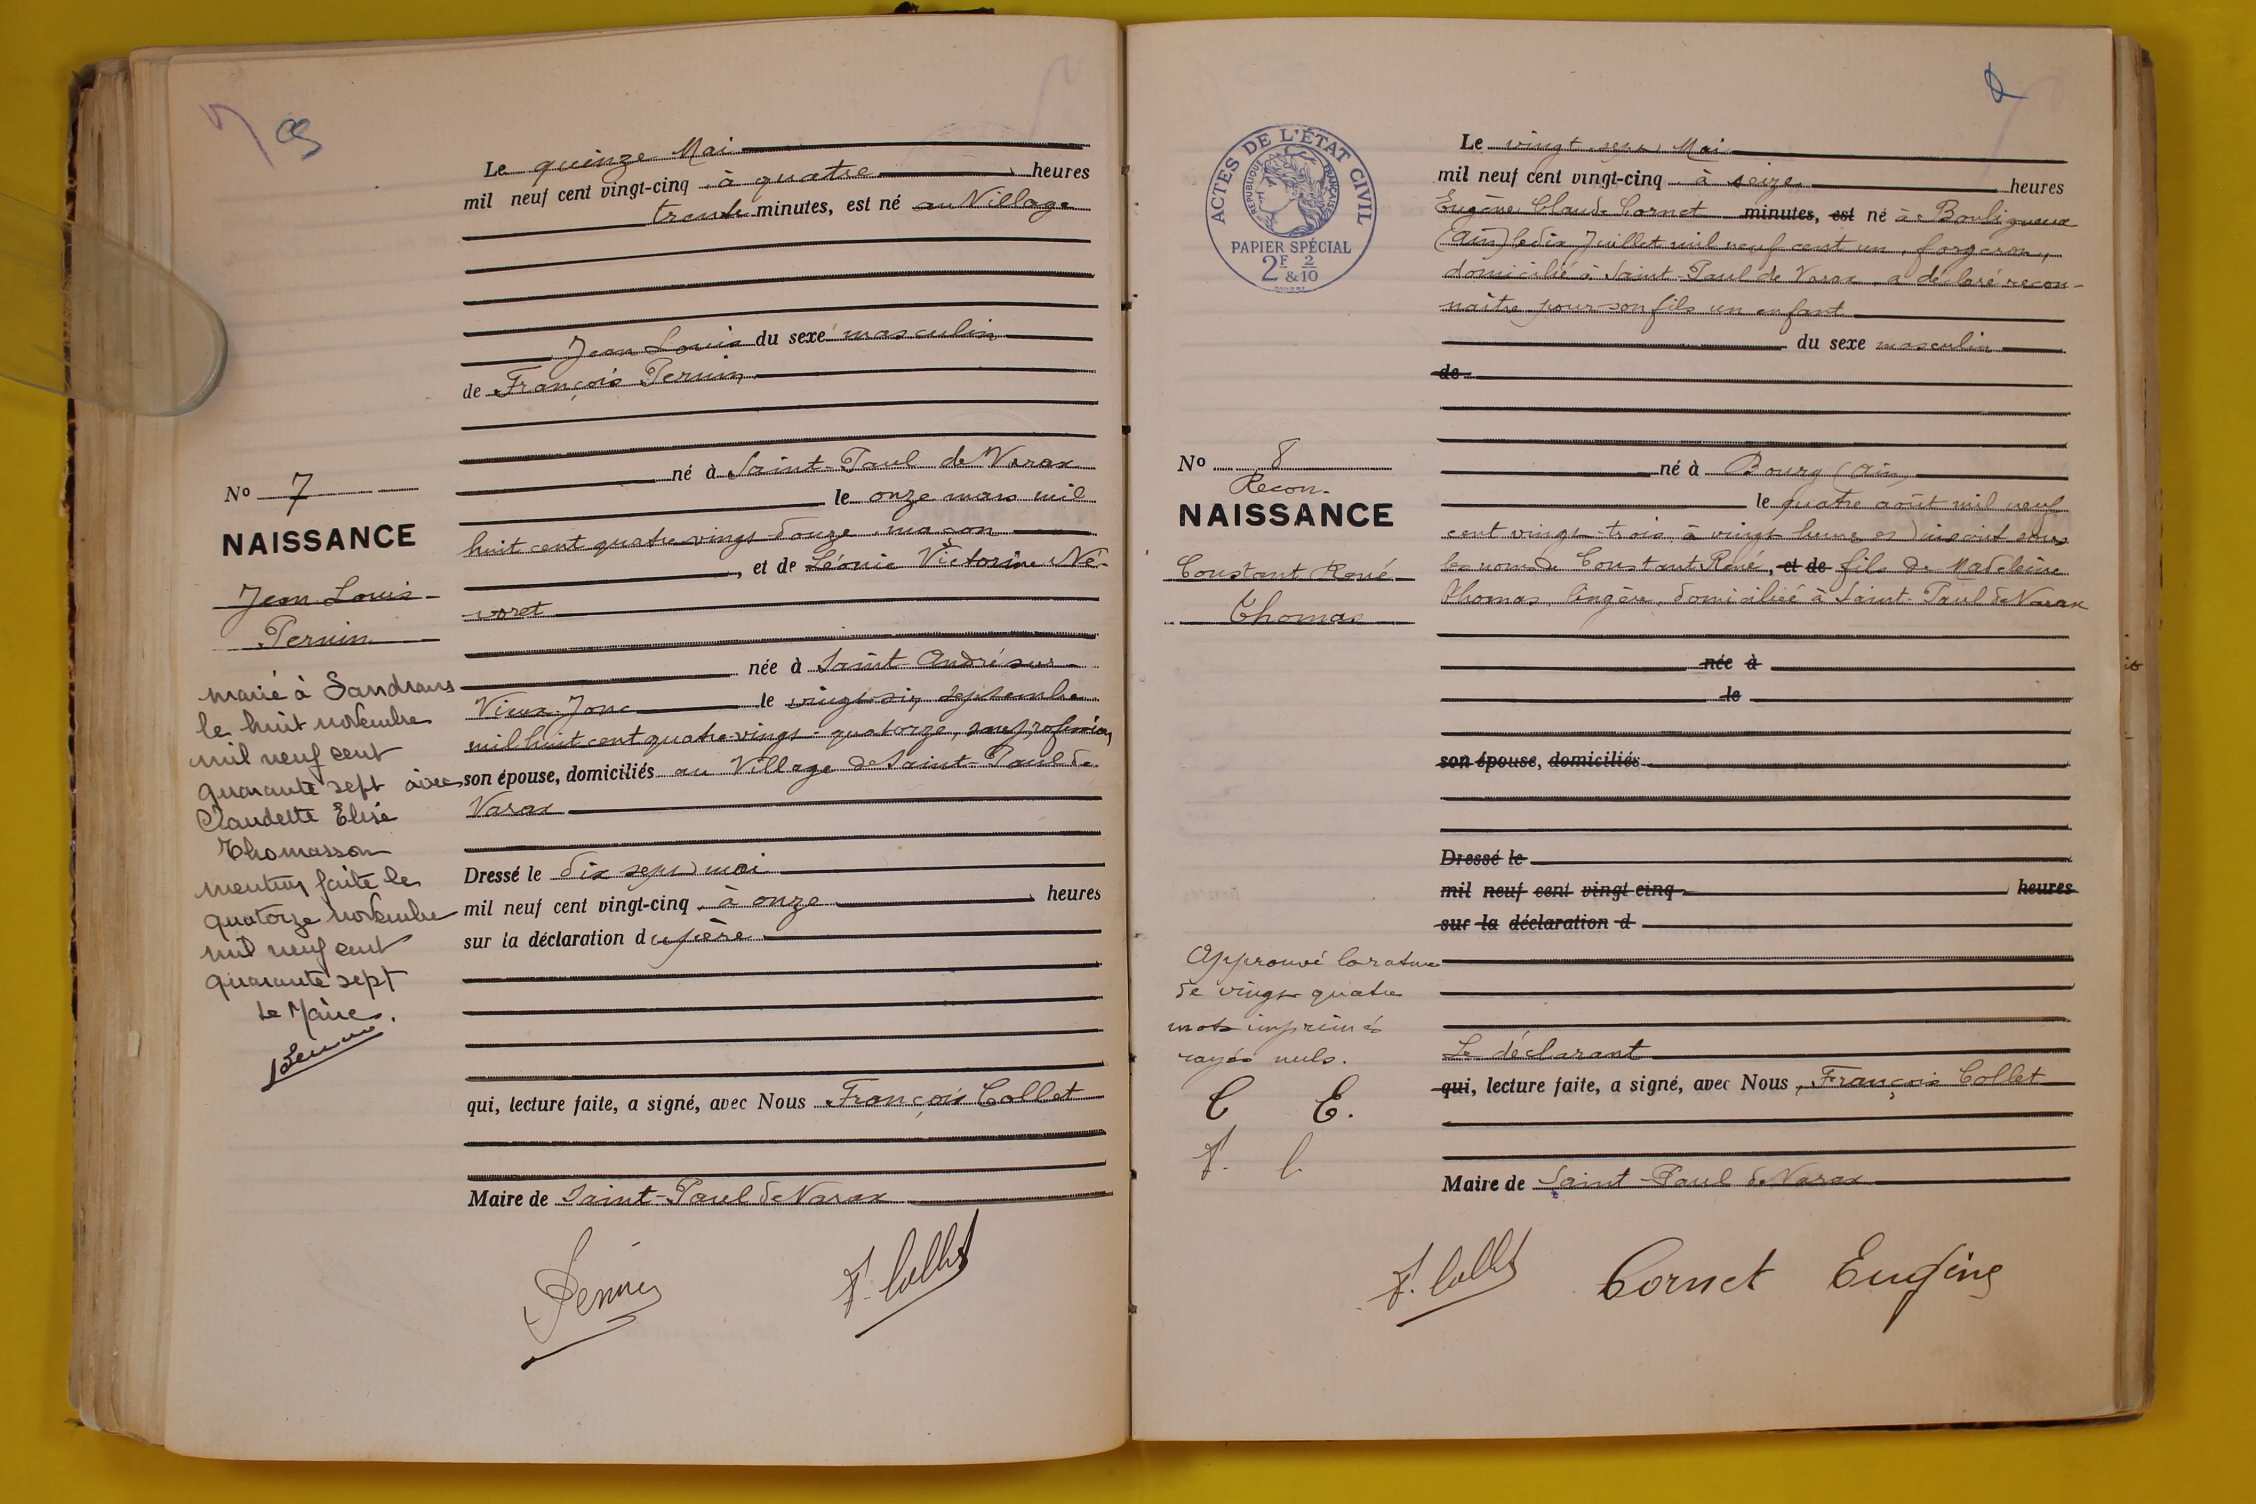 Le quinze Mai
mil neuf cent vingt-cinq à quatre heures
trente minutes, est né au Village
Jean Louis du sexe masculin
de François Perrin
né à Saint-Paul de Varax
le onze mars mil
huit cent quatre-vingt-douze, maçon
, et de Léonie Victorine Né-
voret
née à Saint-André-sur-
Vieux-Jonc le vingt-six septembre
mil huit cent quatre-vingt-quatorze, sans profession,
son épouse, domiciliés au Village de Saint-Paul de
Varax
Dressé le dix sept mai
mil neuf cent vingt-cinq à onze heures
sur la déclaration du père
qui, lecture faite, a signé, avec Nous François Collet
Maire de Saint-Paul de Varax
Perrin
F. Collet
No 7
NAISSANCE
Jean Louis
Perrin
marié à Sandrans
le huit novembre
mil neuf cent
quarante sept avec
Claudette Elise
Thomasson
mention faite le
quatorze novembre
mil neuf cent
quarante sept
Le Maire.
ACTES DE L'ÉTAT CIVIL
RÉPUBLIQUE FRANÇAISE
PAPIER SPÉCIAL
2F & 2/10
Le vingt sept Mai
mil neuf cent vingt-cinq à seize heures
Eugène Claude Cornet minutes, est né à Bouligneux
(Ain) le dix Juillet mil neuf cent un, forgeron,
domicilié à Saint-Paul de Varax, a déclaré recon-
naître pour son fils un enfant
du sexe masculin
de
né à Bourg (Ain)
le quatre août mil neuf
cent vingt-trois à vingt heures inscrit sous
les noms de Constant René, et de fils de Madeleine
Thomas, lingère, domiciliée à Saint-Paul de Varax
née à
le
son épouse, domiciliés
Dressé le
mil neuf cent vingt-cinq heures
sur la déclaration d
Le déclarant
qui, lecture faite, a signé, avec Nous, François Collet
Maire de Saint-Paul de Varax
F. Collet
Cornet Eugène
No 8
Recon.
NAISSANCE
Constant René
Thomas
Approuvé la rature
de vingt quatre
mots imprimés
rayés nuls.
C E.
F. C.